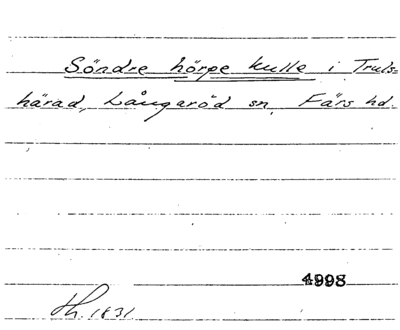 Söndre hörpe kulle i Truls=
härad, Långaröd sn, Färs hd.
4998
Hh. 1831